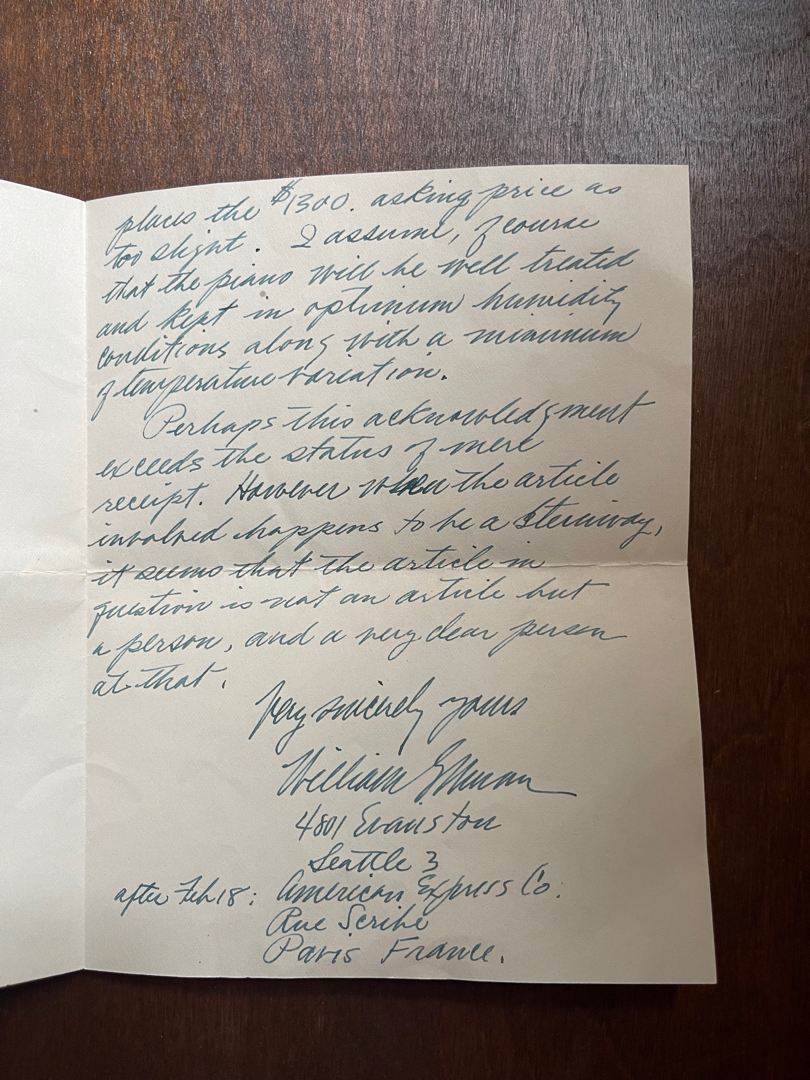 places the $1300. asking price as
too slight. I assume, of course
that the piano will be well treated
and kept in optimum humidity
conditions along with a minimum
of temperature variation.
Perhaps this acknowledgment
exceeds the status of mere
receipt. However when the article
involved happens to be a Steinway,
it seems that the article in
question is not an article but
a person, and a very dear person
at that.
Very sincerely yours
William
4801 Evanston
Seattle 3
after Feb 18: American Express Co.
Rue Scribe
Paris France.